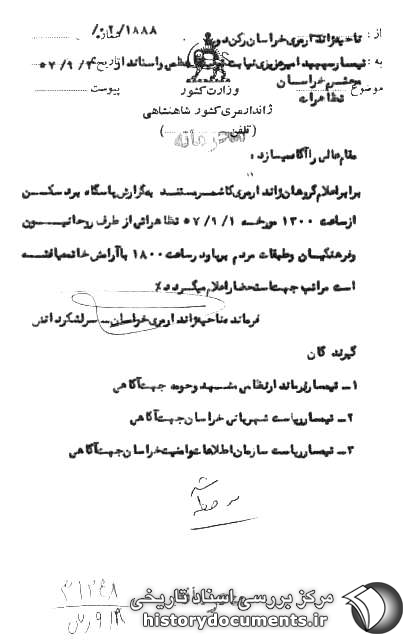 از : ناحیه ژاندارمری خراسان رکن دوم
شماره ۱۸۸۸/
به : تیمسار سپهبد امیر عزیزی نیابت و استاندار
محترم خراسان
تاریخ ۵۷/۹/۲
موضوع تظاهرات
پیوست
وزارت کشور
ژاندارمری کشور شاهنشاهی
( تلفن )
محرمانه
مقام عالی را آگاه میسازد :
برابر اعلام گروهان ژاندارمری کاشمر مستند به گزارش پاسگاه برد سکن
از ساعت ۱۳۰۰ مورخه ۵۷/۹/۱ تظاهراتی از طرف روحانیون
و فرهنگیان و طبقات مردم برپا و در ساعت ۱۸۰۰ با آرامش خاتمه یافته
است مراتب جهت استحضار اعلام میگردد٪
فرمانده ناحیه ژاندارمری خراسان ــ سرلشکر دانش
گیرندگان
۱ــ تیمسار فرماندار نظامی مشهد و حومه جهت آگاهی
۲ــ تیمسار ریاست شهربانی خراسان جهت آگاهی
۳ــ تیمسار ریاست سازمان اطلاعات و امنیت خراسان جهت آگاهی
مرکز بررسی اسناد تاریخی
historydocuments.ir